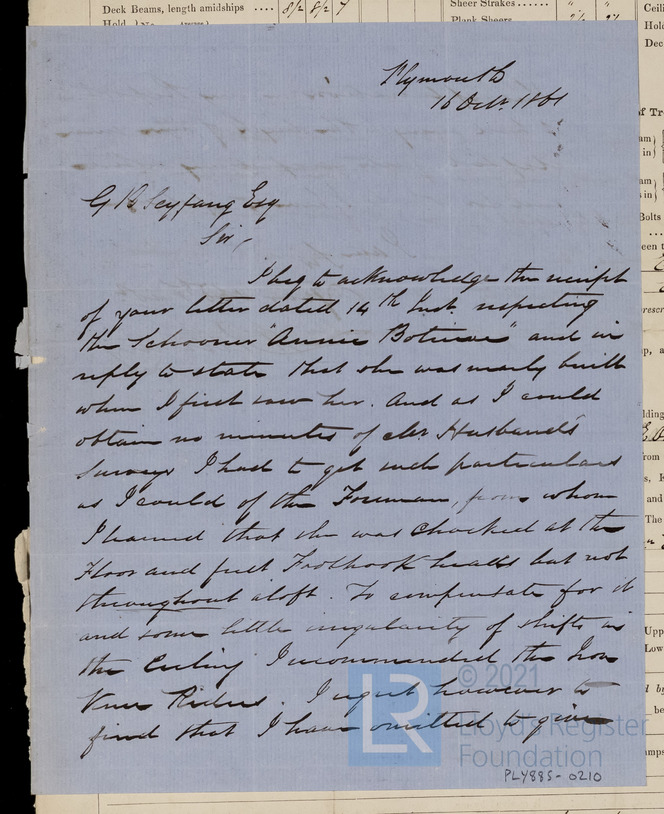 Deck Beams, length amidships .... 8/2 8/2 7
Sheer Strakes ......
Plank Sheers
Plymouth
16 Octr. 1861
G B Seyfang Esq
Sir,
I beg to acknowledge the receipt
of your letter dated 14th Inst. respecting
the Schooner "Annie" and in
reply to state that she was nearly built
when I first saw her. And as I could
obtain no minutes of Mr Husband's
Surveys I had to get such particulars
as I could of the Foreman, from whom
I learned that she was Chocked at the
Floor and first Foothook heads but not
throughout aloft. To compensate for it
and some little irregularity of shifts in
the Ceiling I recommended the Iron
Knee Riders. I regret however to
find that I have omitted to give
LR
© 2021
Lloyd's Register
Foundation
PLY885-0210